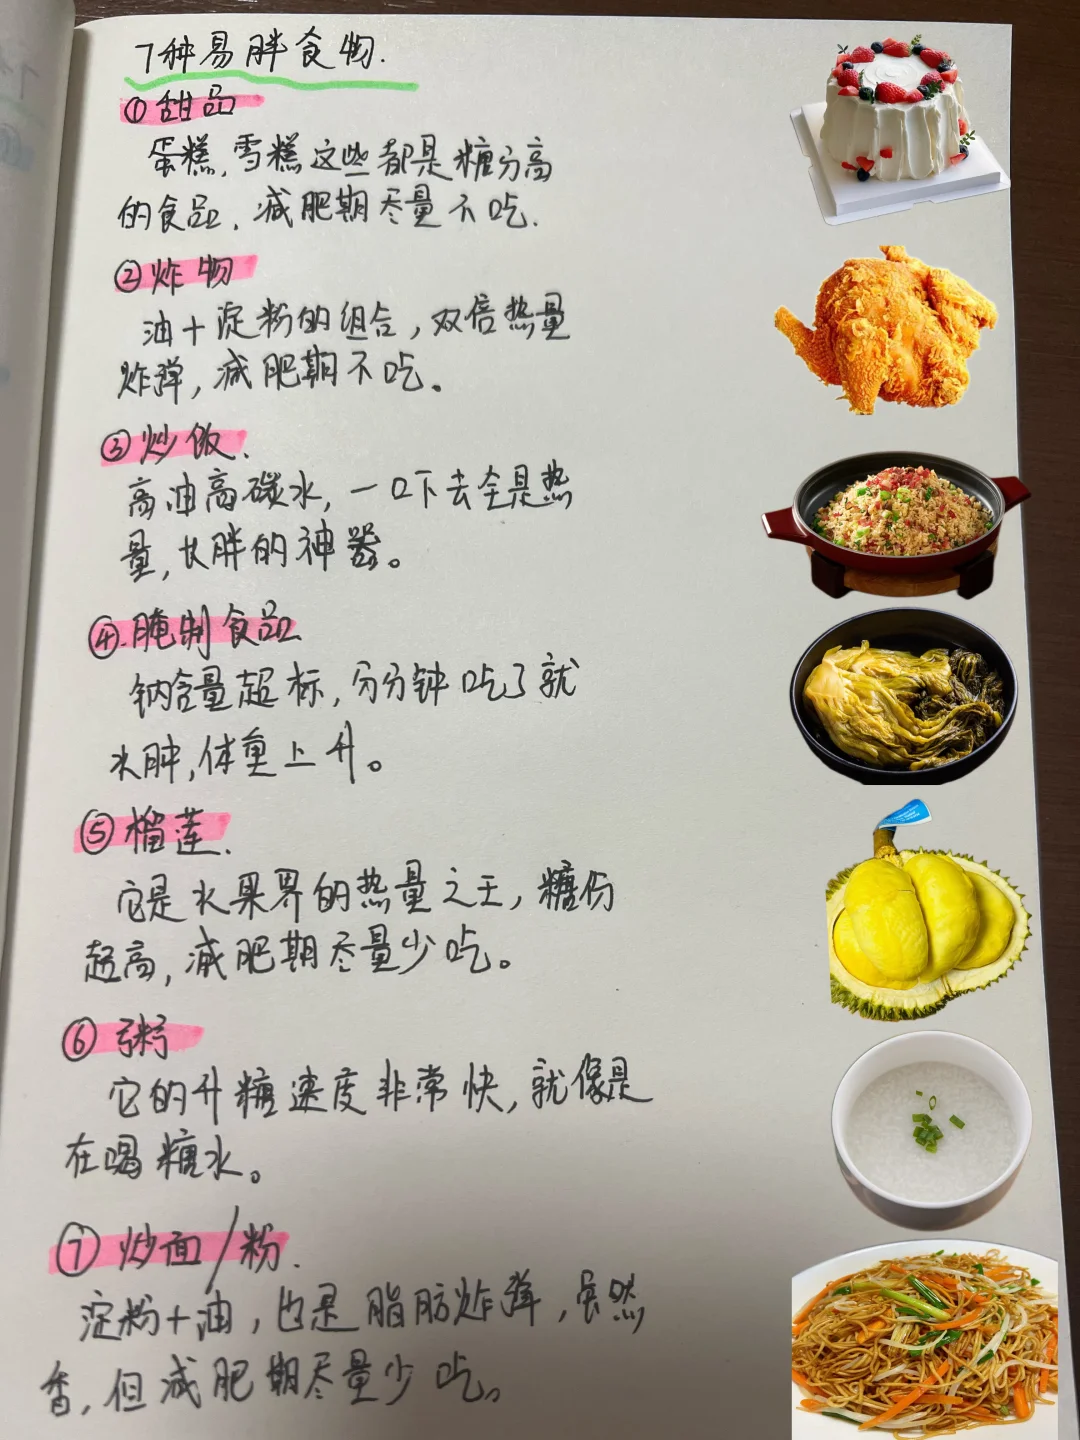 7种易胖食物.
①甜品
蛋糕,雪糕这些都是糖分高
的食品,减肥期尽量不吃.
②炸物
油+淀粉的组合,双倍热量
炸弹,减肥期不吃。
③炒饭.
高油高碳水,一口下去全是热
量,长胖的神器。
④.腌制食品
钠含量超标,分分钟吃了就
水肿,体重上升。
⑤榴莲.
它是水果界的热量之王,糖份
超高,减肥期尽量少吃。
⑥粥
它的升糖速度非常快,就像是
在喝糖水。
⑦炒面/粉.
淀粉+油,也是脂肪炸弹,虽然
香,但减肥期尽量少吃。